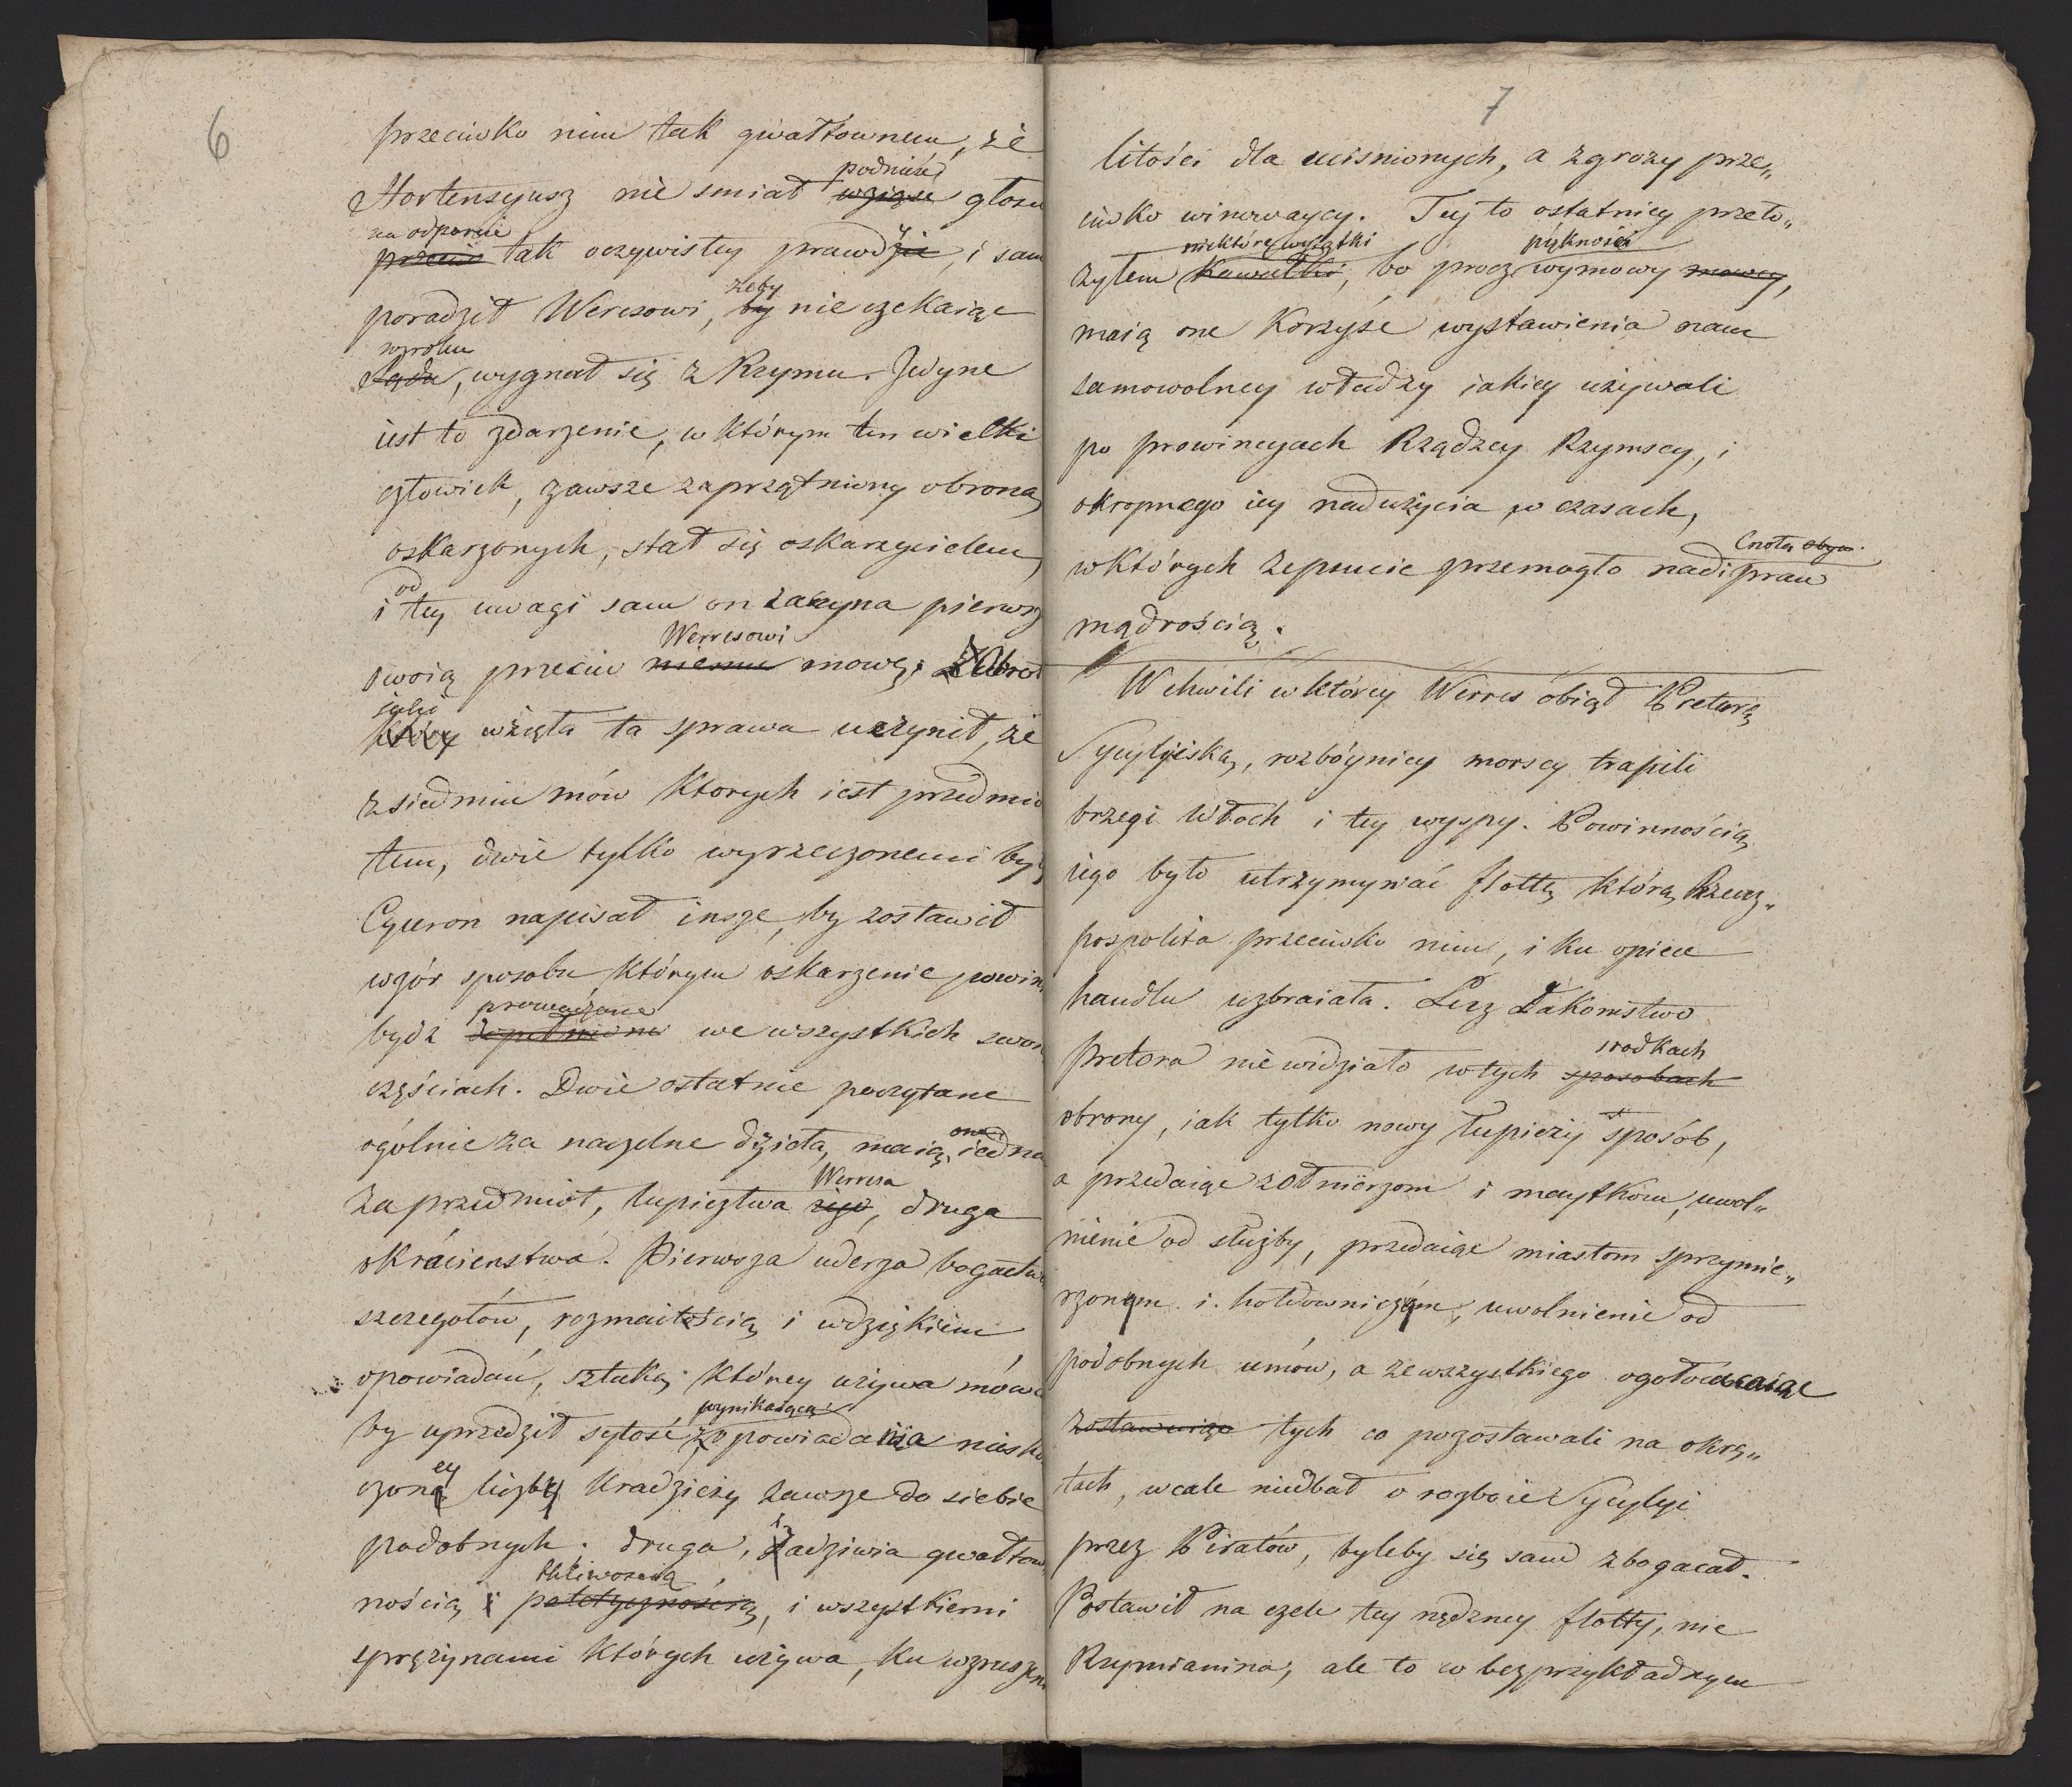 6
przeciwko nim tak gwałtownem, że
podnieść
Hortensyusz nie smiał wziąść głosu
na odparcie
przeciw tak oczywistey prawdzie, i sam
żeby
poradził Weresowi, by nie czekaiąc
wyroku
Sądu, wygnał się z Rzymu. Jedyne
iest to zdarzenie, w którym ten wielki
człowiek, zawsze zaprzątniony obroną
oskarzonych, stał się oskarzycielem,
od
i tey uwagi sam on zaczyna pierwsz
Werresowi
swoią przeciw niemu mowę.
iaki
który wzięła ta sprawa uczynił, że
z siedmiu mów ktorych iest przedmio
tem, dwie tylko wyrzeczonemi był
Cyceron napisał insze, by zostawił
wzór sposobu, którym oskarzenie powin
prowadzone
bydź dopełnione we wszystkich swoi
częściach. Dwie ostatnie poczytane
one
ogólnie za naczelne dzieła, maią, iedna
Werresa
za przedmiot, łupieztwa iego, druga
okrucienstwa. Pierwsza uderza bogactw
szczegołów, rozmaitością i wdziękiem
opowiadań, sztuką którey używa mówc
wynikaiącą
by uprzedził sytość z opowiadania niesko
ey
czoną liczby kradzieży zawsze do siebie
podobnych. druga, zadziwia gwałtow
tkliwością
nością i patetycznością, i wszystkiemi
sprężynami których używa, ku wzruszeni
7
litości dla ucisnionych, a zgrozy prze„
ciwko winowaycy. Tey to ostatniey przeło„
niektóre wyiątki piękności
żyłem kawałki, bo procz wymowy mowcy,
maią one korzyść wystawienia nam
samowolney władzy iakiey używali
po prowincyach Rządzcy Rzymscy, i
okropnego iey nadużycia w czasach,
Cnotą obycz.
w których zepsucie przemogło nad i praw
mądrością.
W chwili w którey Werres obiął Preturę
Sycyliiską, rozbóynicy morscy trapili
brzegi Włoch i tey wyspy. Powinnością
iego było utrzymywać flottę którą Rzecz„
pospolita przeciwko nim, i ku opiece
handlu uzbraiała. Lecz Łakomstwo
srodkach
Pretora nie widziało w tych sposobach
obrony, iak tylko nowy łupieży sposób,
a przedaiąc zołnierzom i maytkom, uwol„
nienie od służby, przedaiąc miastom sprzymie„
rzonym i hołdowniczym, uwolnienie od
podobnych umów, a ze wszystkiego ogołocaiąc
zostawuiąc tych co pozostawali na okrę„
tach, wcale niedbał o rozboie Sycylyi
przez Piratów, byleby się sam zbogacał.
Postawił na czele tey nędzney flotty, nie
Rzymianina, ale to w bezprzykładnym